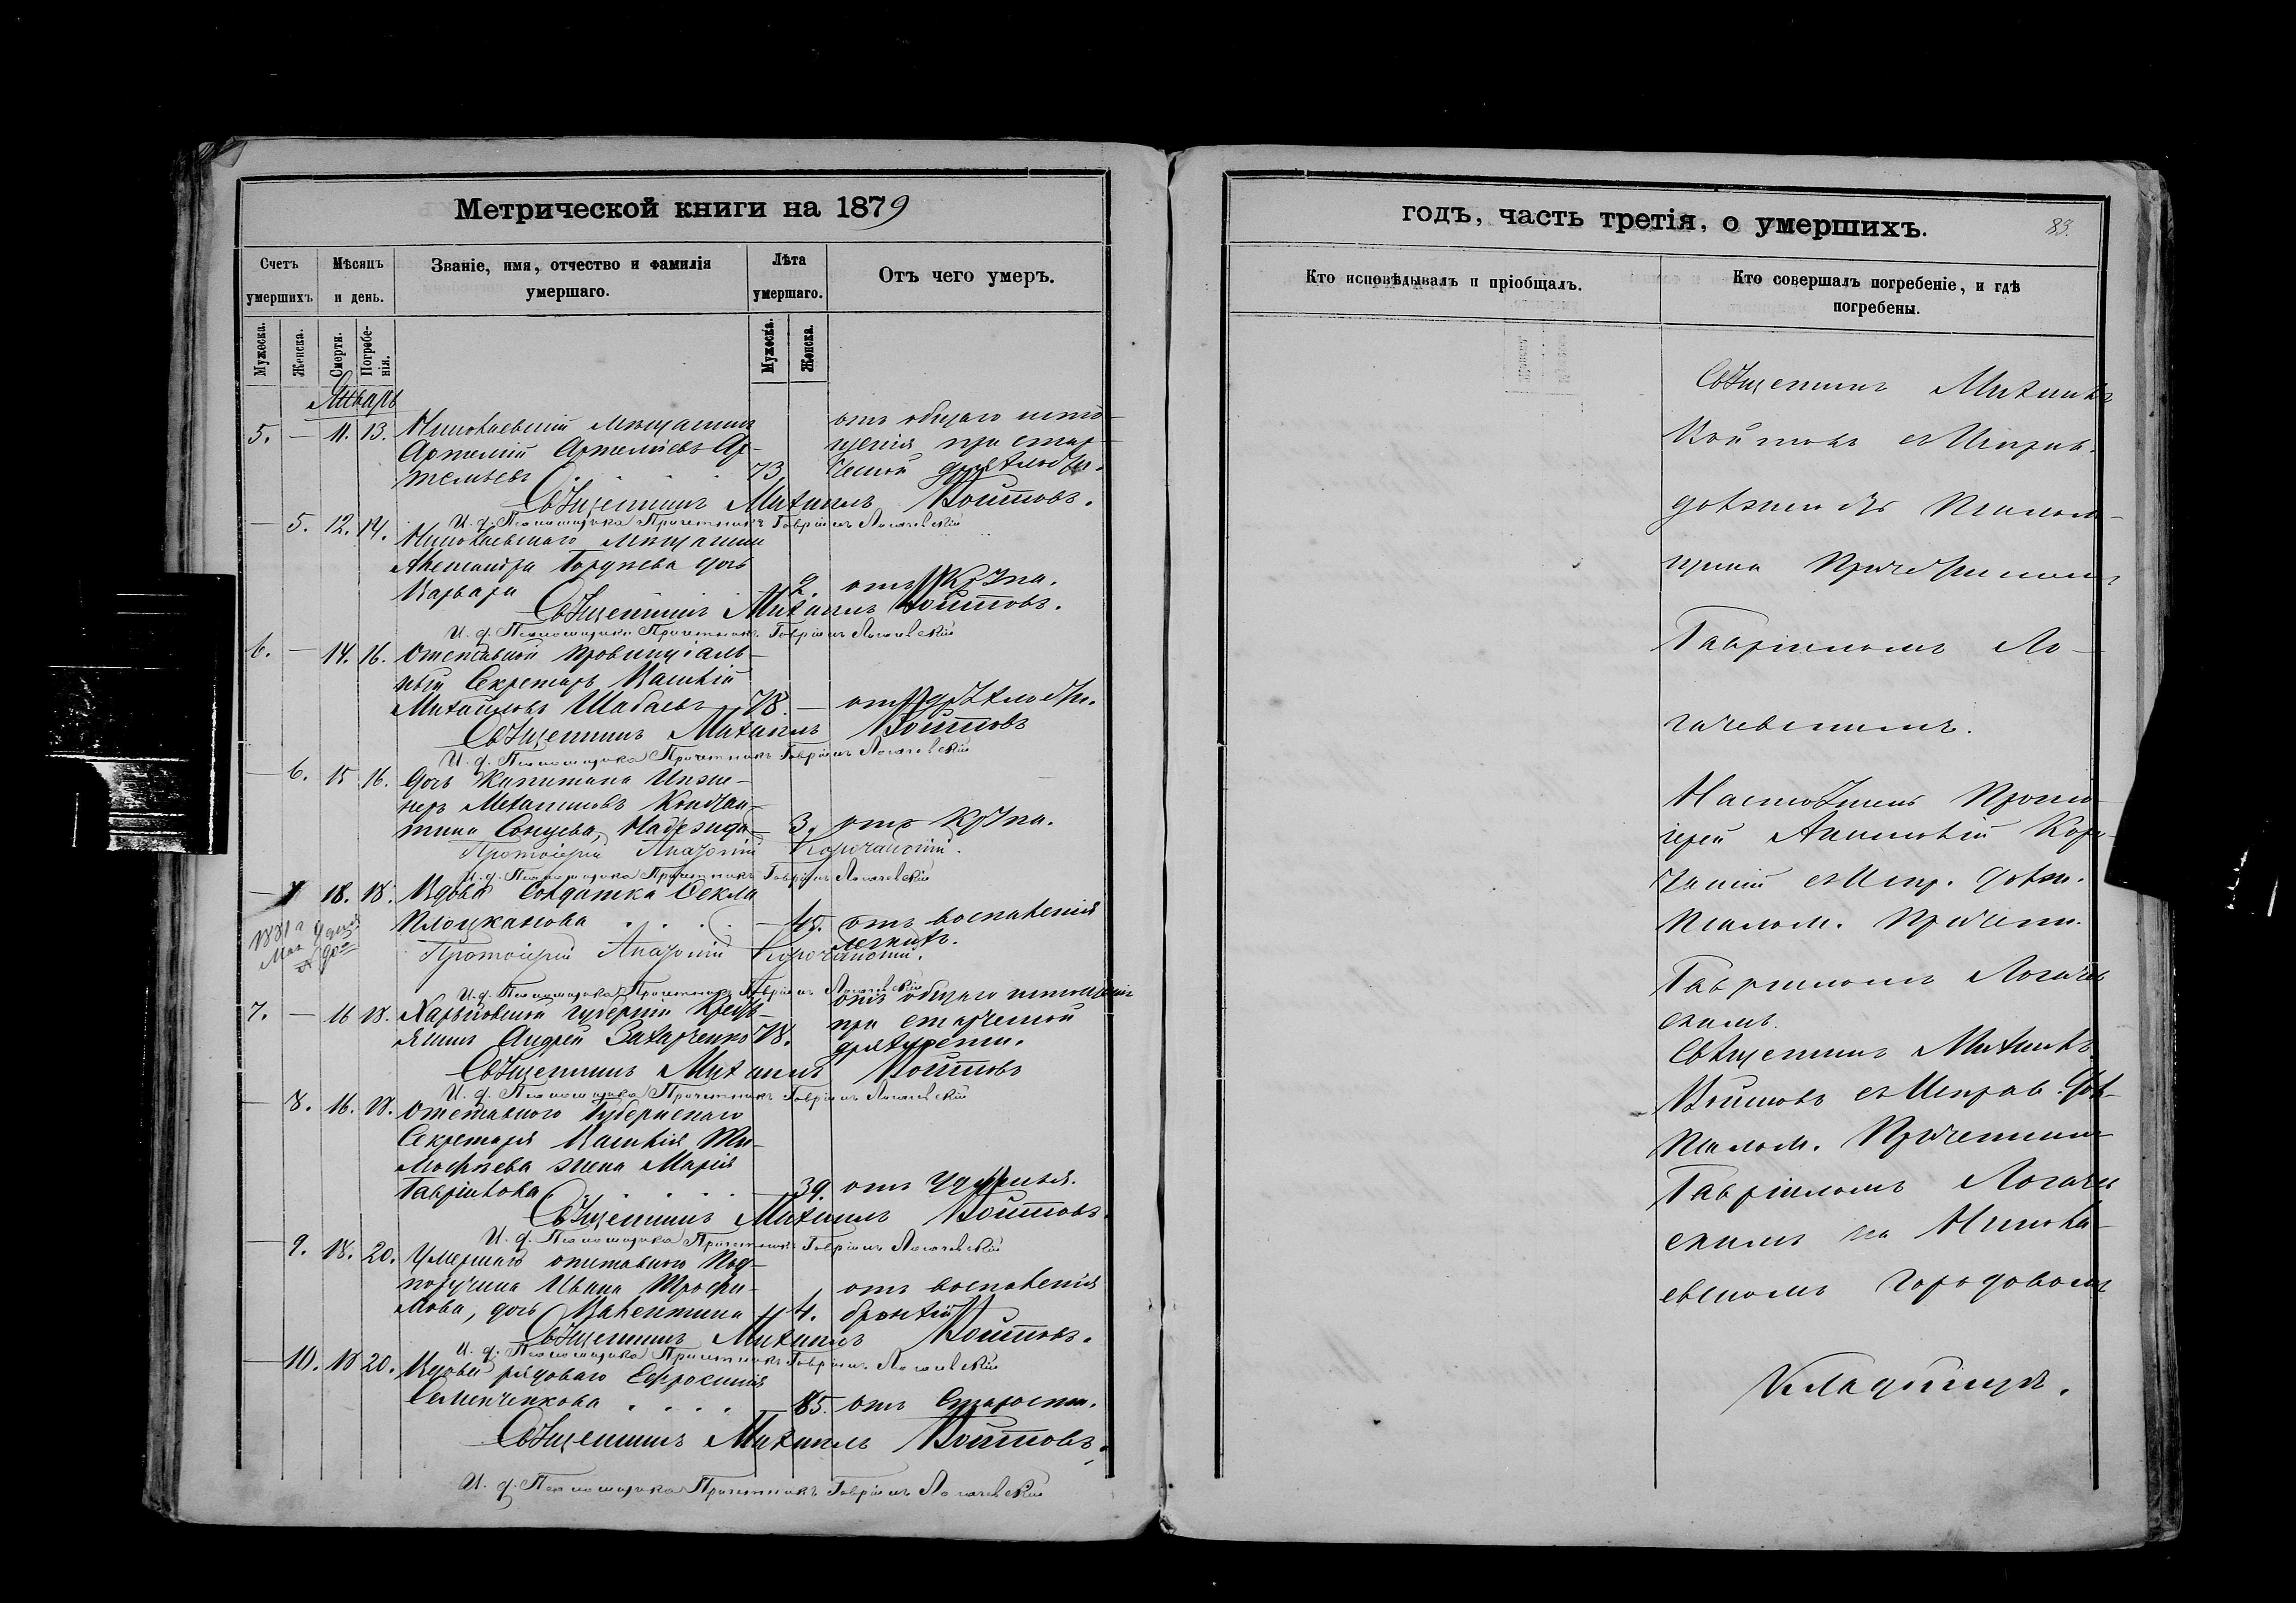 Метрической книги на 1879
Счетъ умершихъ
Мѣсяцъ и день.
Званіе, имя, отчество и фамилія умершаго.
Лѣта умершаго.
Отъ чего умеръ.
Мужеска.
Женска.
Смерти.
Погребенія.
Мужеска.
Женска.
Январь
5. — 11. 13. Николаевскій мѣщанинъ
Артемій Артемьевъ Ар-
темьевъ . . . . 73.
отъ общаго исто-
щенія при стар-
ческой дряхлости.
Священникъ Михаилъ Войтовъ.
И. д. Псаломщика Причетникъ Гавріилъ Логачевскій
— 5. 12. 14. Николаевскаго мѣщанина
Александра дочь
Варвара 2. отъ крупа.
Священникъ Михаилъ Войтовъ.
И. д. Псаломщика Причетникъ Гавріилъ Логачевскій
6. — 14. 16. Отставной провинціаль-
ный Секретарь Василій
Михайловъ Шабаевъ 78. — отъ дряхлости.
Священникъ Михаилъ Войтовъ
И. д. Псаломщика Причетникъ Гавріилъ Логачевскій
— 6. 15 16. Дочь Капитана Инже-
неръ Механиковъ Констан-
тина Сонцева, Надежда — 3. отъ крупа.
Протоіерей Анатолій Корочанскій.
И. д. Псаломщика Причетникъ Гавріилъ Логачевскій
— 7 18. 18. Вдова Солдатка Фекла
. . . — 45. отъ воспаленія
легкихъ.
Протоіерей Анатолій Корочанскій.
И. д. Псаломщика Причетникъ Гавріилъ Логачевскій
7. — 16 18. Харьковской губерніи Кресть-
янинъ Андрей Захарченко 78.
отъ общаго истощенія
при старческой
дряхлости.
Священникъ Михаилъ Войтовъ
И. д. Псаломщика Причетникъ Гавріилъ Логачевскій
— 8. 16. 18. Отставного Губернскаго
Секретаря Василія Ти-
мофеева жена Марія
Гаврилова . . . . — 39. отъ удушья.
Священникъ Михаилъ Войтовъ.
И. д. Псаломщика Причетникъ Гавріилъ Логачевскій
— 9. 18. 20. Умершаго отставного Под-
поручика Ивана Трофи-
мова, дочь Валентина 4.
отъ воспаленія
бронхій
Священникъ Михаилъ Войтовъ.
И. д. Псаломщика Причетникъ Гавріилъ Логачевскій
— 10. 18 20. Вдова рядоваго Ефросинія
Семенченкова . . . . — 85. отъ старости.
Священникъ Михаилъ Войтовъ.
И. д. Псаломщика Причетникъ Гавріилъ Логачевскій
годъ, часть третія, о умершихъ.
83.
Кто исповѣдывалъ и пріобщалъ.
Кто совершалъ погребеніе, и гдѣ погребены.
Священникъ Михаилъ
Войтовъ съ Исправ.
должность Псалом-
щика Причетникомъ
Гавріиломъ Ло-
гачевскимъ.
Настоятель Прото-
іерей Анатолій Коро-
чанскій съ Испр. долж.
Псалом. Причетн.
Гавріиломъ Логачев
скимъ.
Священникъ Михаилъ
Войтовъ съ Исправ. дол.
Псалом. Причетник
Гавріиломъ Логачев
скимъ на Никола-
евскомъ городовомъ
кладбищѣ.